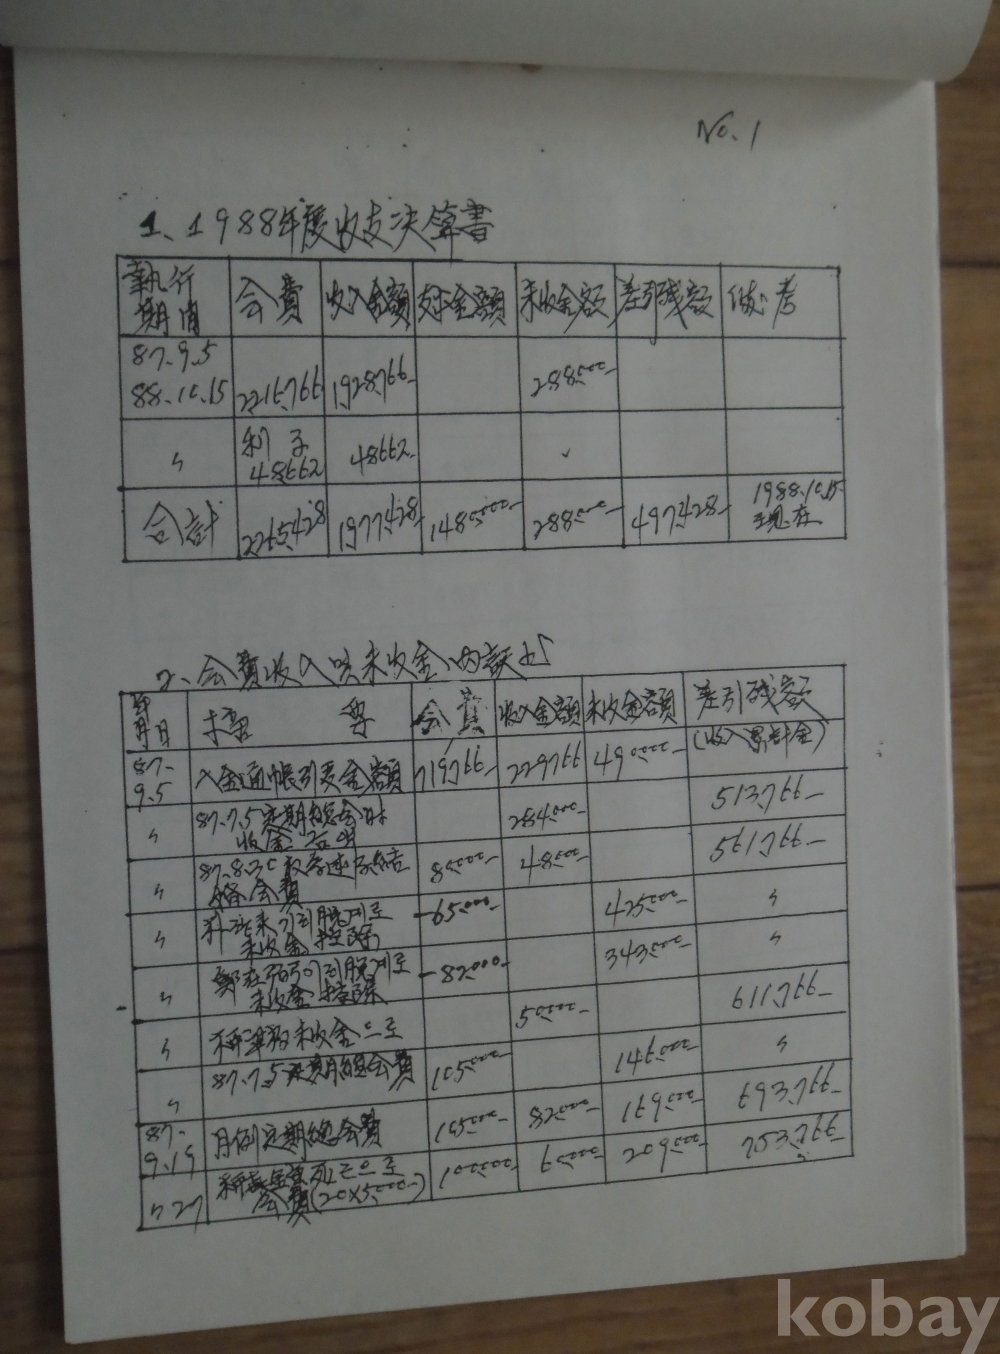 No. 1
1、1988年度收支決算書
執行期間 会費 收入金額 支出金額 未收金額 差引残額 備考
87.9.5
88.10.15 2216,766 1928,766- 288,000-
〃 利子 48662 48662-
合計 2265,428 1977,428- 1480,000- 288,000- 497,428- 1988.10.15 現在
2、会費收入 未收金 内訳
年月日 会費 收入金額 未收金額 差引残額
(收入累計金)
87-9.5 入金通帳引受金額 719,766- 229,766 490,000-
〃 87.7.5 定期總会時 284,000- 513,766-
〃 87.8.30 会費 48,000- 561,766-
〃 未收金 控除 -65,000- 425,000- 〃
〃 未收金 控除 -82,000- 343,000- 〃
〃 未收金으로 50,000- 611,766-
〃 87.7.5 定期總会費 105,000- 〃
87-9.19 月例定期總会費 105,000- 82,000- 169,000- 693,766-
〃 27 死亡으로 会費(20×5,000-) 100,000- 60,000- 209,000- 753,766-
kobay